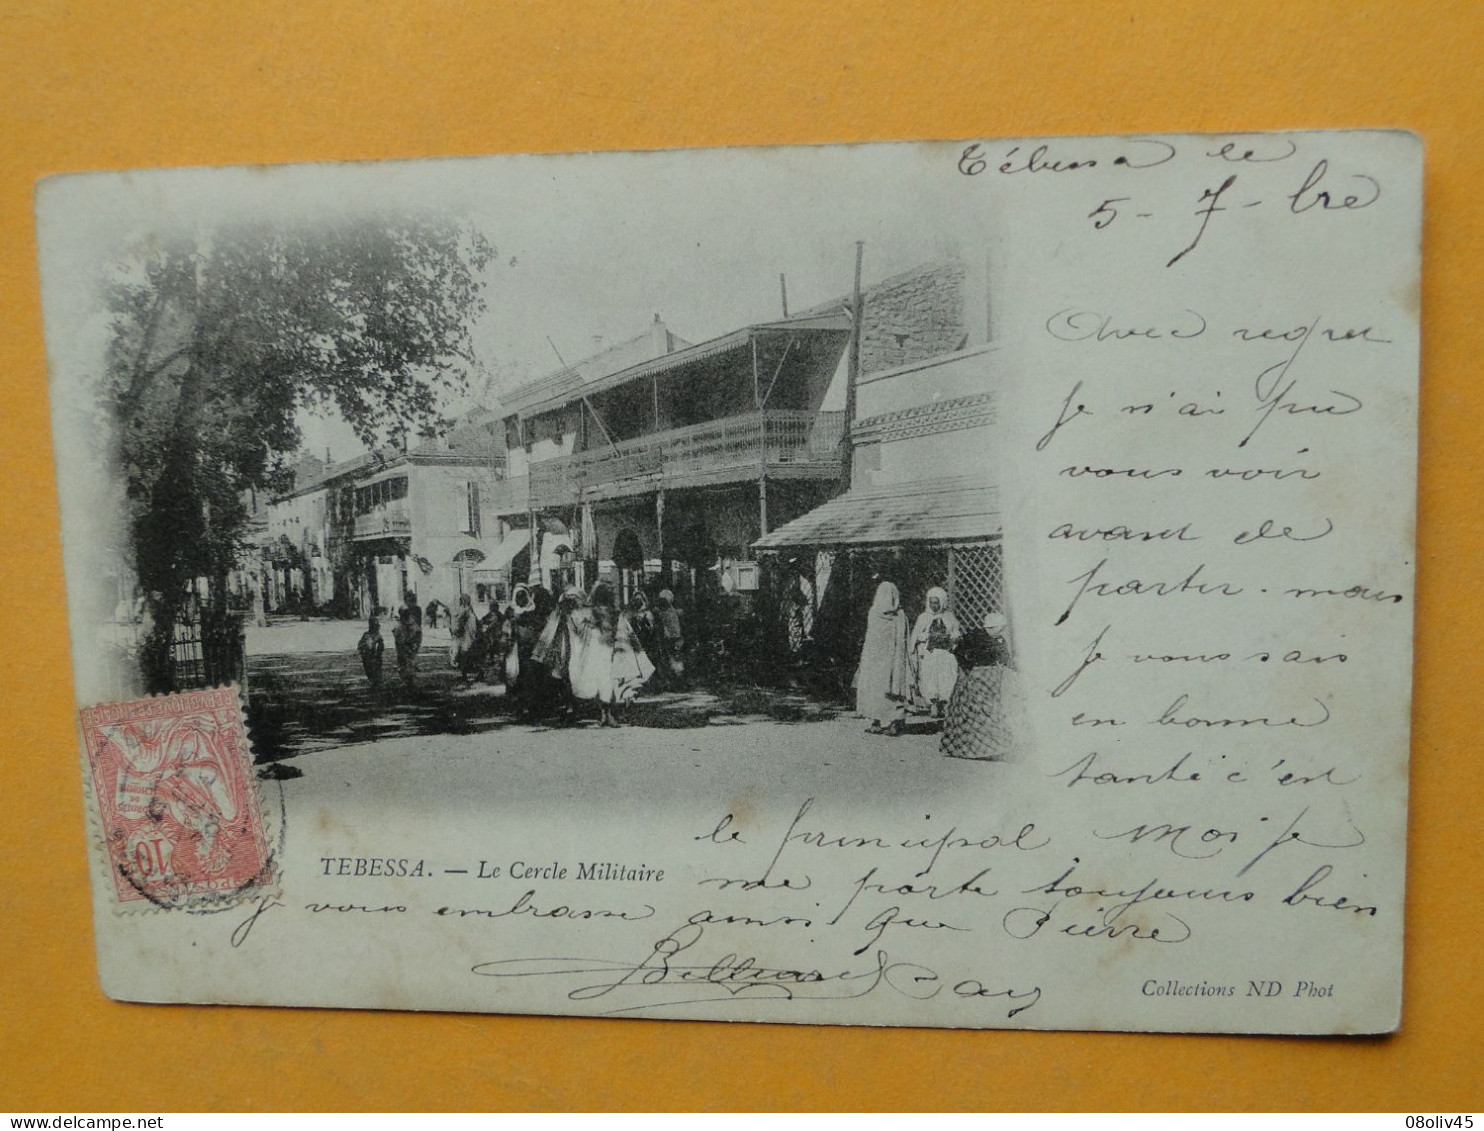 Tébessa le
5 - 7 - bre
Avec regret
Je n'ai pu
vous voir
avant de
partir. mais
Je vous sais
en bonne
santé c'est
le principal Moi Je
me porte toujours bien
Je vous embrasse ainsi que Pierre
Billiard
TEBESSA. — Le Cercle Militaire
Collections ND Phot
10
DROITS
DE
POSTES
08oliv45